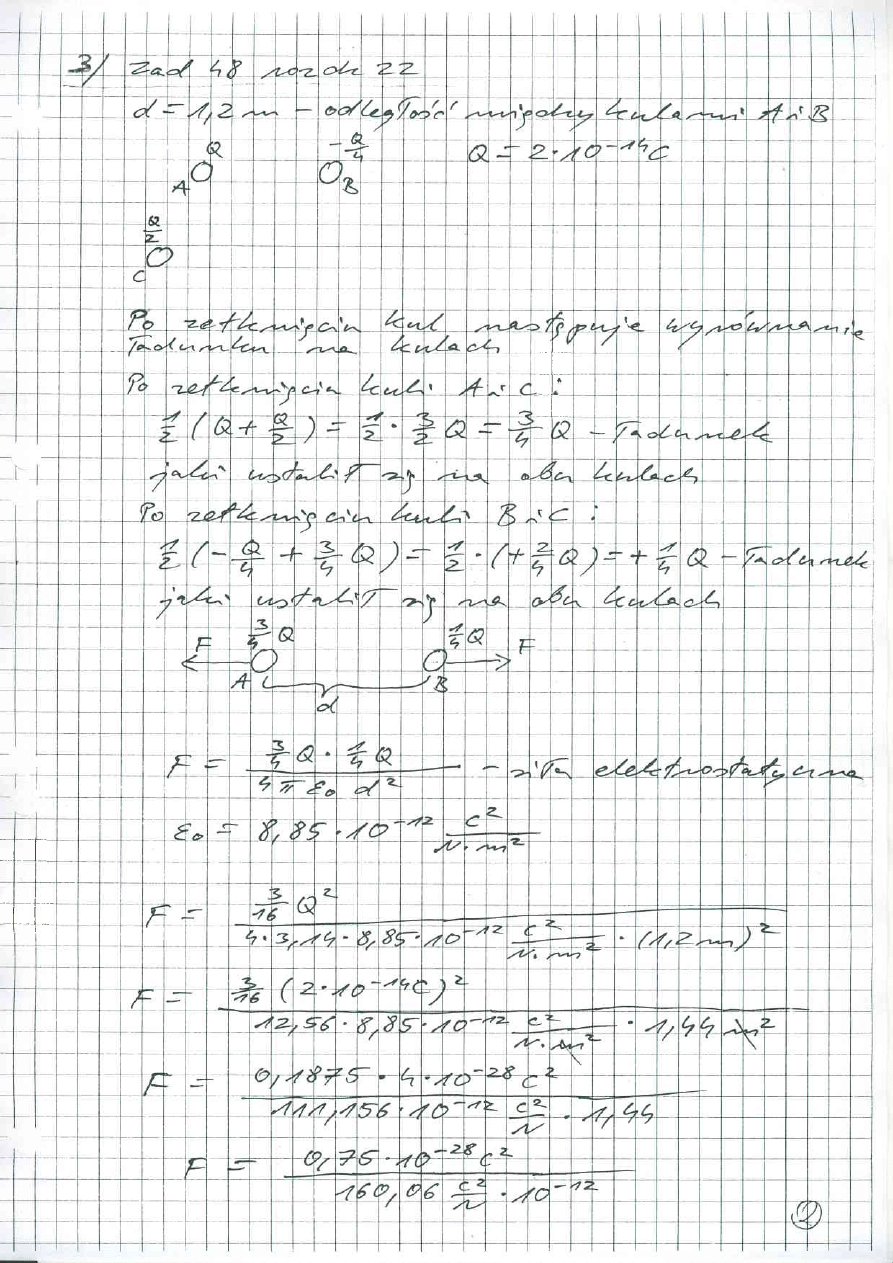 3/ Zad 48 rozdz 22
d = 1,2 m – odległość między kulami A i B
Q -Q/4 Q = 2·10⁻¹⁴C
A B
Q/2
C
Po zetknięciu kul następuje wyrównanie
ładunku na kulach
Po zetknięciu kuli A i C :
1/2 (Q + Q/2) = 1/2 · 3/2 Q = 3/4 Q – ładunek
jaki ustalił się na obu kulach
Po zetknięciu kuli B i C :
1/2 (-Q/4 + 3/4 Q) = 1/2 · (+2/4 Q) = + 1/4 Q – ładunek
jaki ustalił się na obu kulach
F 3/4 Q 1/4 Q F
A B
d
F = (3/4 Q · 1/4 Q)/(4 π ε₀ d²) – siła elektrostatyczna
ε₀ = 8,85·10⁻¹² C²/(N·m²)
F = (3/16 Q²)/(4·3,14·8,85·10⁻¹² C²/(N·m²) · (1,2 m)²)
F = (3/16 (2·10⁻¹⁴C)²)/(12,56·8,85·10⁻¹² C²/(N·m²) · 1,44 m²)
F = (0,1875 · 4·10⁻²⁸ C²)/(111,156·10⁻¹² C²/N · 1,44)
F = (0,75·10⁻²⁸ C²)/(160,06 C²/N · 10⁻¹²)
2